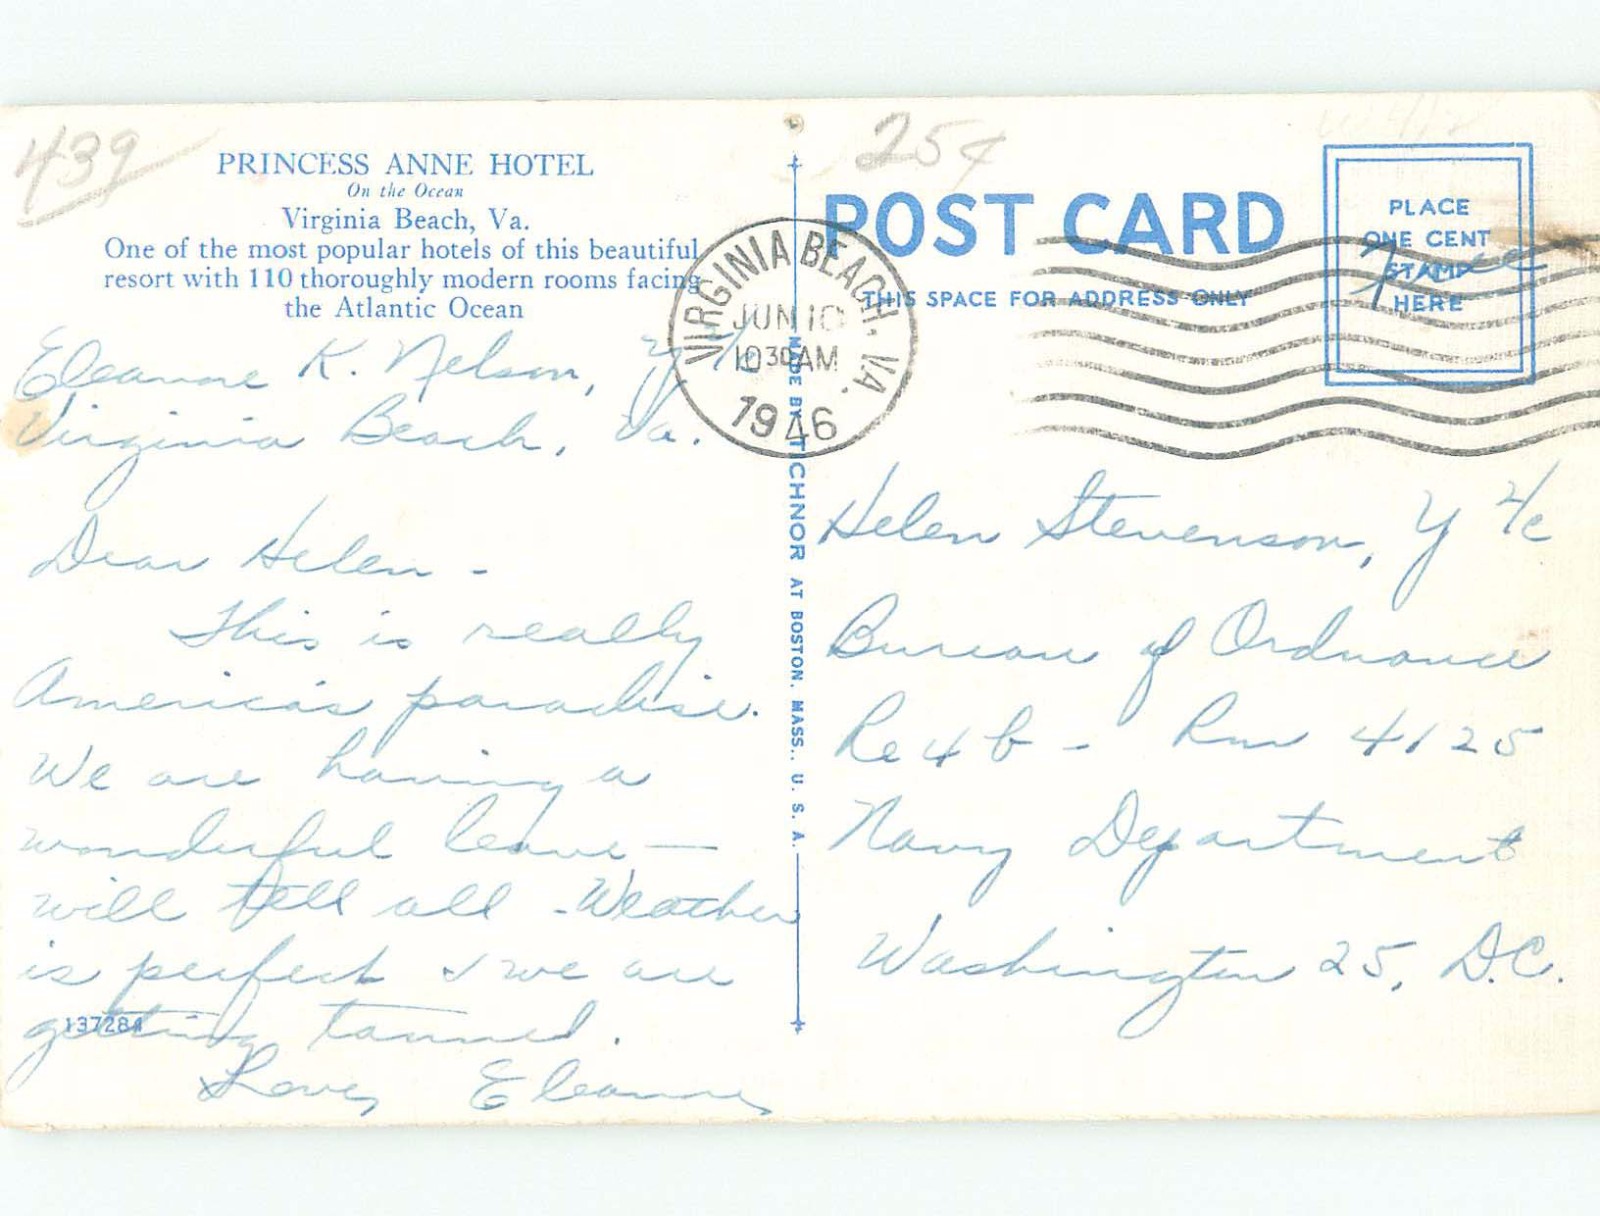 439
PRINCESS ANNE HOTEL
On the Ocean
Virginia Beach, Va.
One of the most popular hotels of this beautiful
resort with 110 thoroughly modern rooms facing
the Atlantic Ocean
Eleanore K. Nelson, Y
Virginia Beach, Va.
Dear Helen -
This is really
America's paradise.
We are having a
wonderful leave —
will tell all - Weather
is perfect & we are
getting tanned.
137284
Love, Eleanore
MADE BY TICHNOR AT BOSTON, MASS., U. S. A.
VIRGINIA BEACH, VA.
JUN 10
10 30 AM
1946
25¢
POST CARD
THIS SPACE FOR ADDRESS ONLY
PLACE
ONE CENT
STAMP
HERE
Free
Helen Stevenson, Y 4/c
Bureau of Ordnance
Re4b - Rm 4125
Navy Department
Washington 25, D.C.